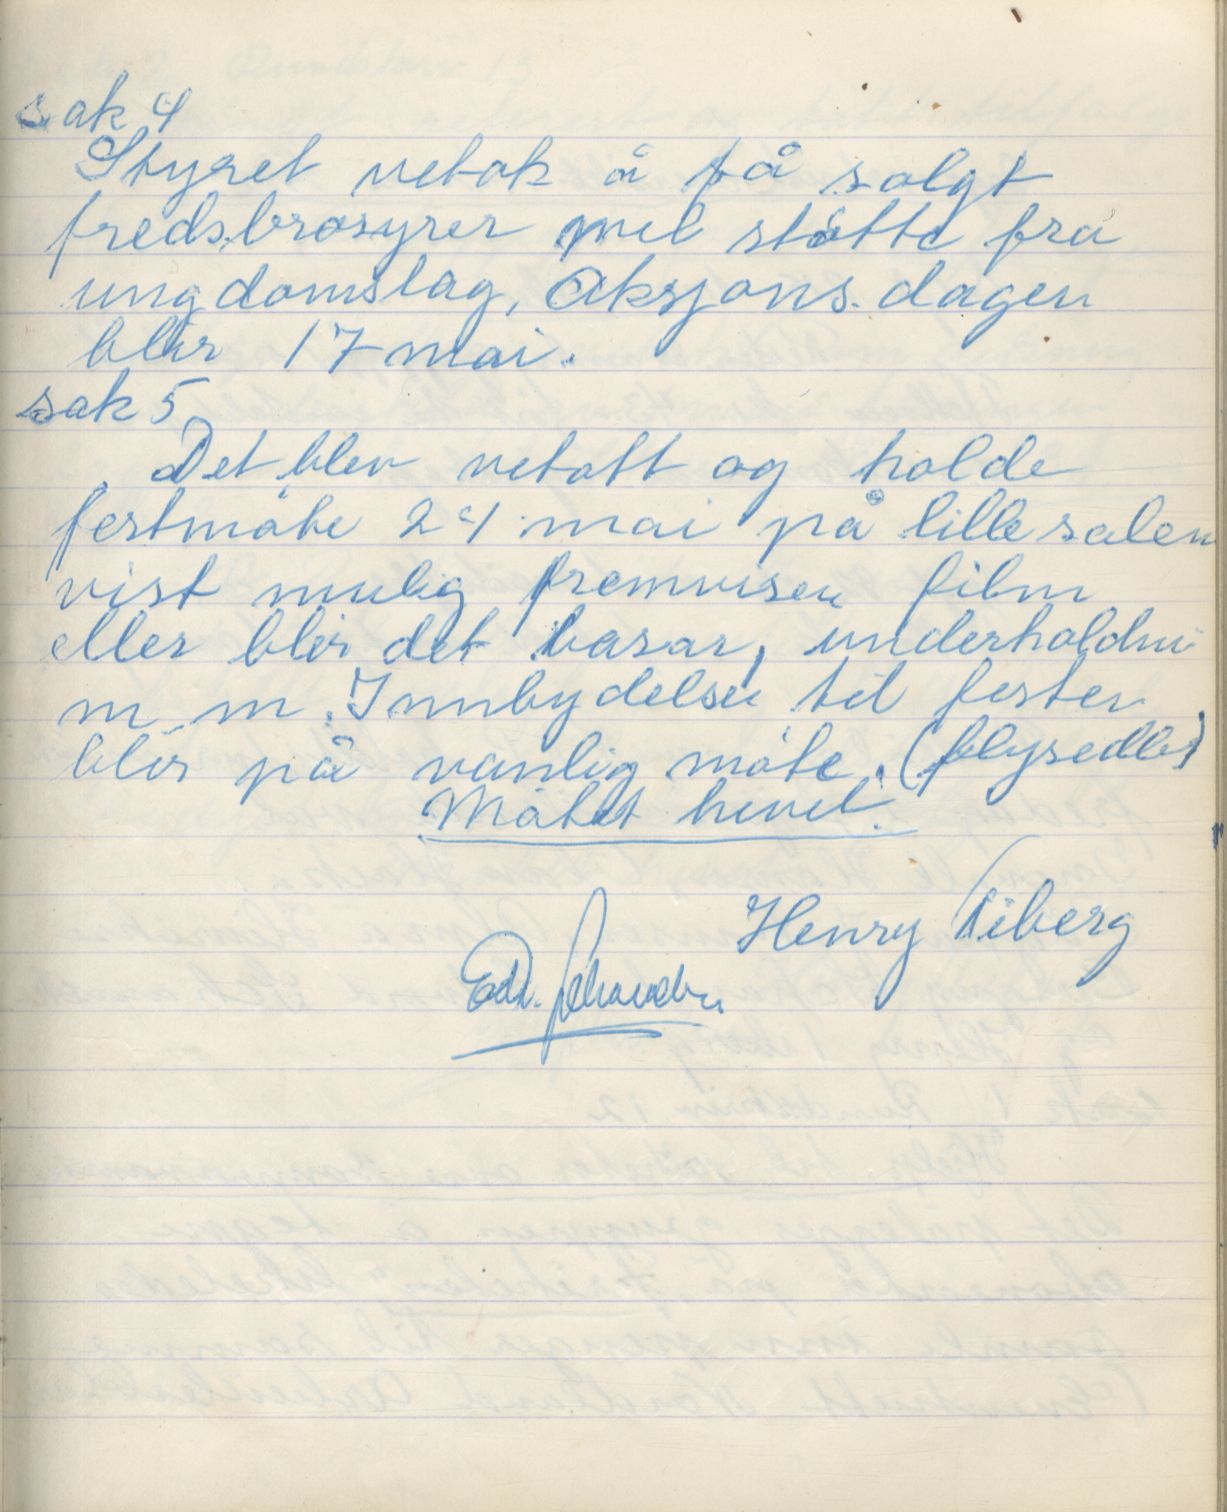 sak 4
Styret vetok å få solgt
fredsbrosyrer med støtte fra
ungdomslag, Aksjons.dagen
blir 17 mai.
sak 5
Det blev vetatt og holde
festmøte 24 mai på lille salen
vist mulig fremvisen film
eller blir det basar, underholdni
m.m. Innbydelsen til festen
blir på vanlig møte. (flysedler)
Møtet hevet.
Henry Viberg
Edv.